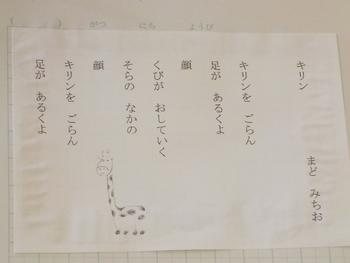 がつ　にち　ようび
キリン
まど　みちお
キリンを　ごらん
足が　あるくよ
顔
くびが　おしていく
そらの　なかの
顔
キリンを　ごらん
足が　あるくよ